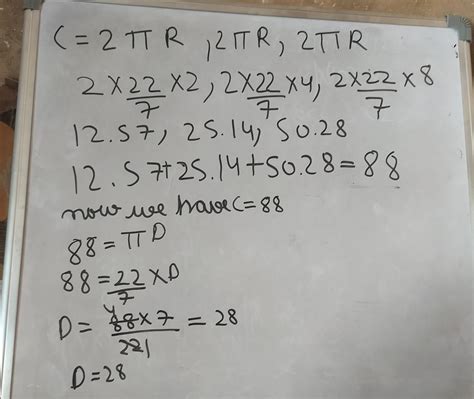 C = 2πR, 2πR, 2πR
2×22/7×2, 2×22/7×4, 2×22/7×8
12.57, 25.14, 50.28
12.57+25.14+50.28=88
now we have C=88
88=πD
88=22/7×D
D= 4 88×7/22 1 = 28
D=28